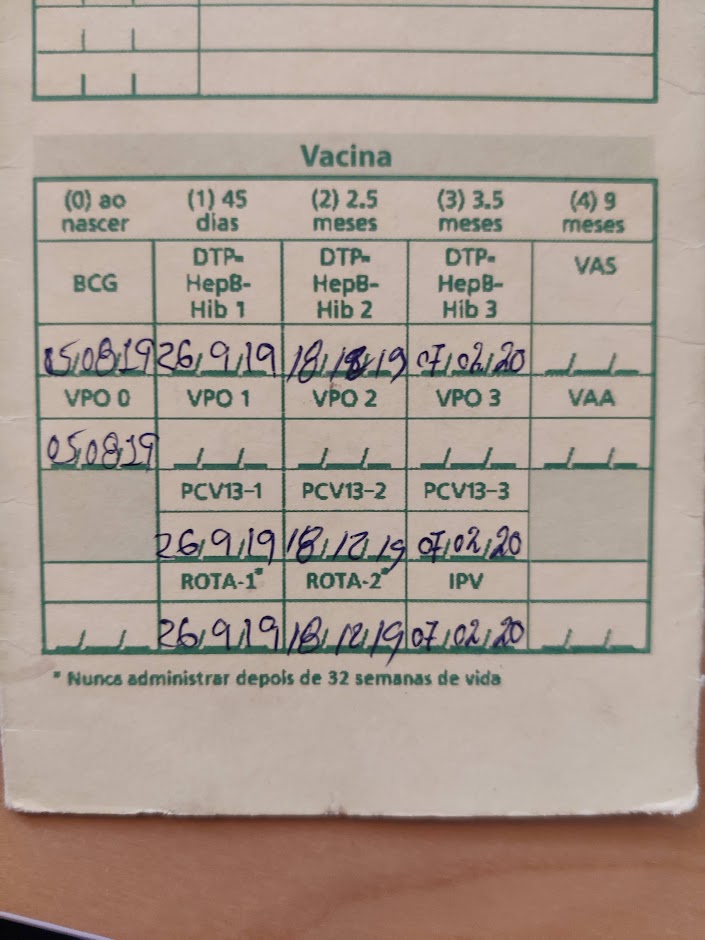 Vacina
(0) ao nascer (1) 45 dias (2) 2.5 meses (3) 3.5 meses (4) 9 meses
BCG DTP-HepB-Hib 1 DTP-HepB-Hib 2 DTP-HepB-Hib 3 VAS
05/08/19 26/9/19 18/12/19 07/02/20
VPO 0 VPO 1 VPO 2 VPO 3 VAA
05/08/19
PCV13-1 PCV13-2 PCV13-3
26/9/19 18/12/19 07/02/20
ROTA-1* ROTA-2* IPV
26/9/19 18/12/19 07/02/20
* Nunca administrar depois de 32 semanas de vida